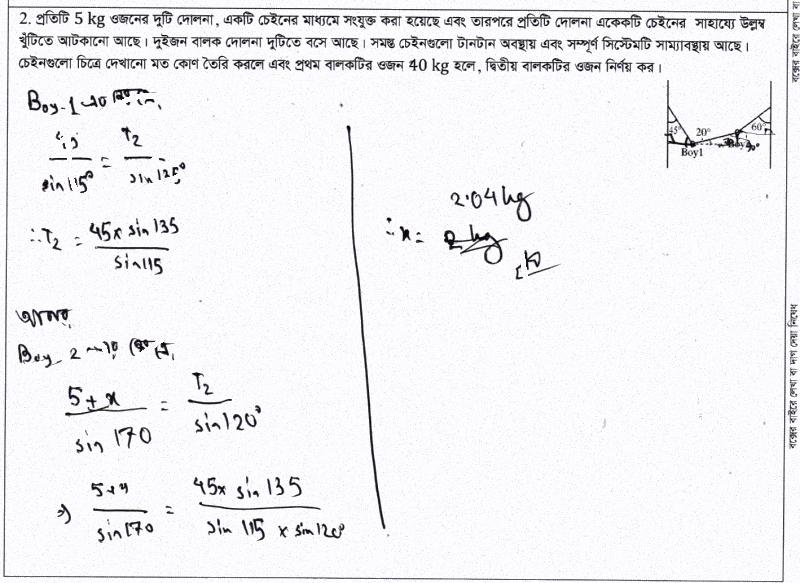 2. প্রতিটি 5 kg ওজনের দুটি দোলনা, একটি চেইনের মাধ্যমে সংযুক্ত করা হয়েছে এবং তারপরে প্রতিটি দোলনা একেকটি চেইনের সাহায্যে উল্লম্ব
খুঁটিতে আটকানো আছে। দুইজন বালক দোলনা দুটিতে বসে আছে। সমস্ত চেইনগুলো টানটান অবস্থায় এবং সম্পূর্ণ সিস্টেমটি সাম্যাবস্থায় আছে।
চেইনগুলো চিত্রে দেখানো মত কোণ তৈরি করলে এবং প্রথম বালকটির ওজন 40 kg হলে, দ্বিতীয় বালকটির ওজন নির্ণয় কর।
45° 20° 60°
Boy1
Boy-1 এর
45 / sin 115° = T2 / sin 135°
∴ T2 = 45 x sin 135 / sin 115
আবার,
Boy 2 এর
5+x / sin 170 = T2 / sin 120°
⇒ 5+x / sin 170 = 45 x sin 135 / sin 115 x sin 120°
2.04 kg
∴ x = 2 kg
বক্সের বাইরে লেখা বা দাগ দেয়া নিষেধ